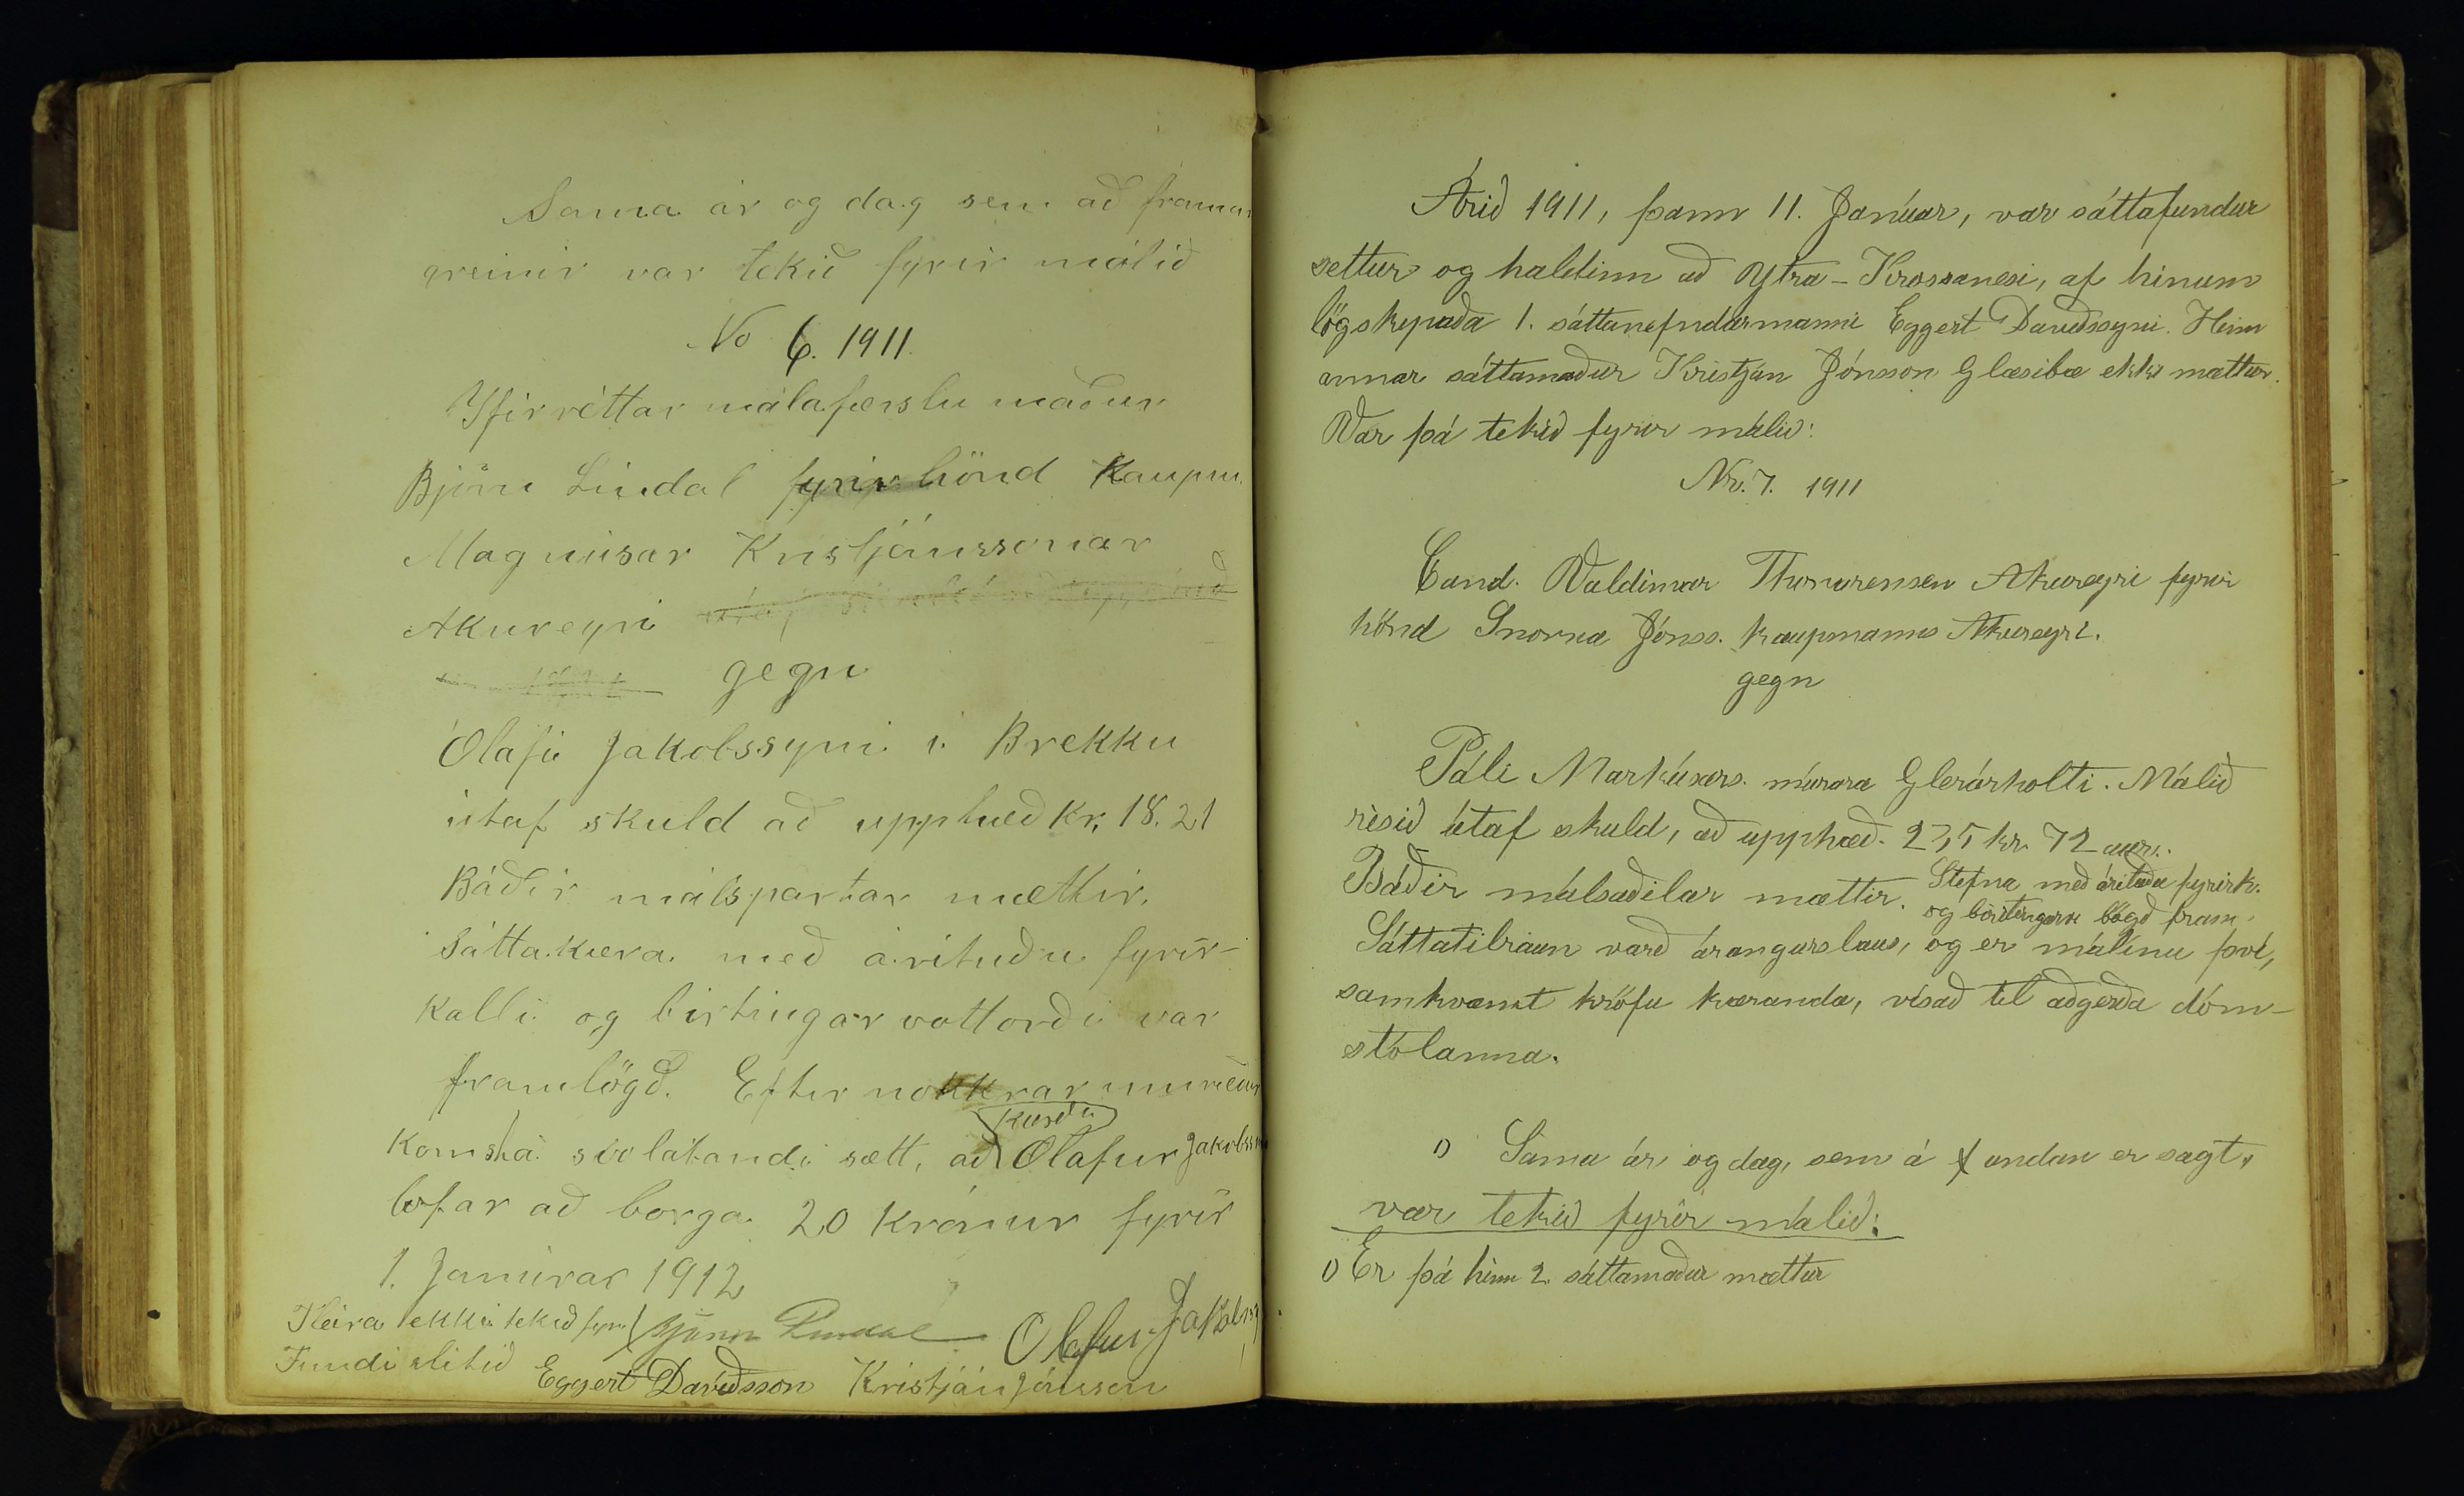 Sama ár og dag sem að framan
greinir var tekið fyrir málið
No 6. 1911.
Yfirréttar málafærslu maður
Björn Lindal fyrir hönd Kaupm.
Magnúsar Kristjánssonar
Akureyri
gegn
Ólafi Jakobssyni í Brekku
útaf skuld að upphæð Kr. 18.21
Báðir málspartar mættir.
Sáttakæra með árituðu fyrir-
kalli og birtingar vottorði var
framlögð. Eftir nokkrar umræður
Kærði
komst á svolátandi sætt, að Ólafur Jakobsson
lofar að borga 20 krónur fyrir
1. Janúrar 1912
Fleira ekki tekið fyrir Björn Lindal Olafur Jakobss
Fundi slitið Eggert Davíðsson Kristján Jónsson
Árið 1911, þann 11. Janúar, var sáttafundur
settur og haldinn að Ytra-Krossanesi, af hinum
lögskipaða 1. sáttanefndarmanni Eggert Davíðssyni. Hinn
annar sáttamaður Kristján Jónsson Glæsibæ ekki mættur.
Var þá tekið fyrir málið:
Nr. 7. 1911
Cand. Valdimar Thorarensen Akureyri fyrir
hönd Snorra Jónss. kaupmanns Akureyri.
gegn
Páli Markúsars. múrara Glerárholti. Málið
risið útaf skuld, að upphæð. 235 kr. 72 aur.
Báðir málsaðilar mættir. Stefna með áritaða fyrirk.
og birtingarv lögð fram.
Sáttatilraun varð árangurslaus, og er málinu því,
samkvæmt kröfu kæranda, vísað til aðgerða dóm-
stólanna.
1) Sama ár og dag, sem á undan er sagt,
var tekið fyrir málið:
1) Er þá hinn 2. sáttamaður mættur